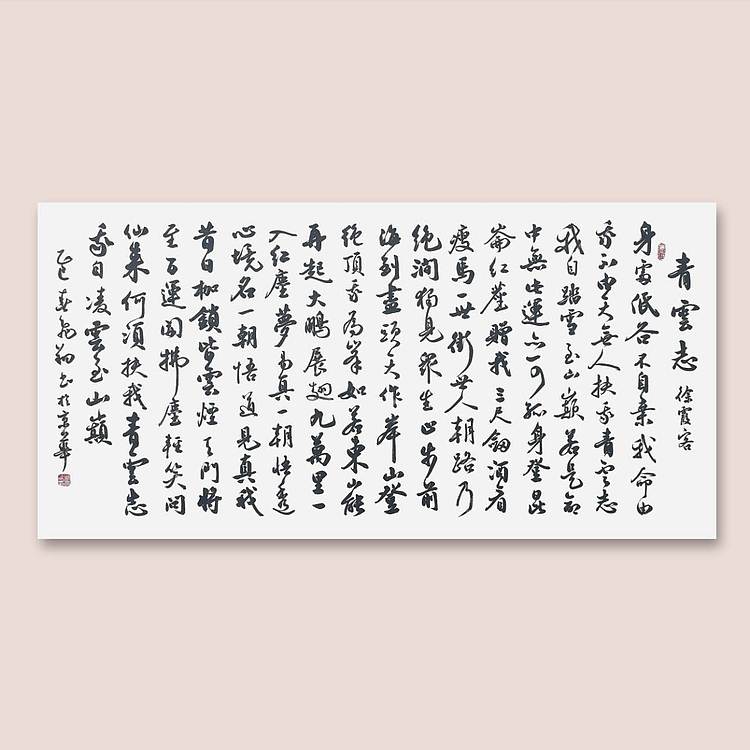 青雲志 徐霞客
身處低谷不自棄我命由
我不由天無人扶我青雲志
我自踏雪至山巔若是命
中無此運亦可孤身登昆
崙紅塵贈我三尺劍酒肴
瘦馬一世街世人朝路乃
絶澗獨見眾生止步前
海到盡頭天作岸山登
絶頂我為峯如若東山能
再起大鵬展翅九萬里一
入紅塵夢易真一朝悟透
心境名一朝悟道見真我
昔日枷鎖皆雲煙天門將
至百運開拂塵輕笑問
仙來何須扶我青雲志
我自凌雲至山巔
乙巳春 書於京華